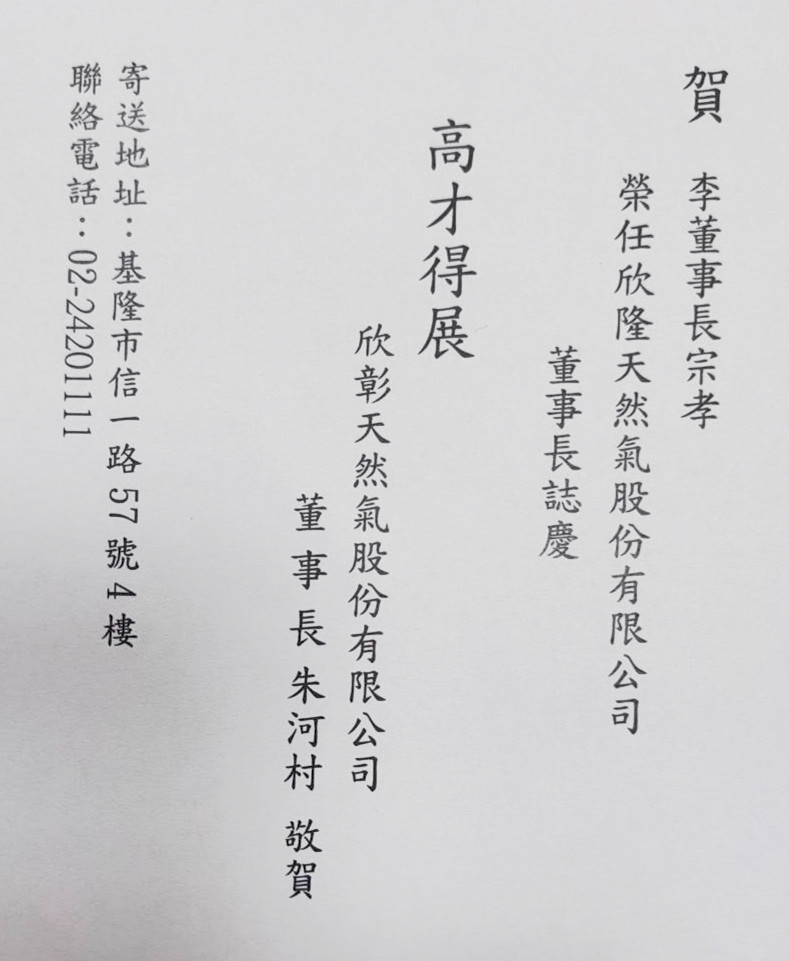 賀 李董事長宗孝
榮任欣隆天然氣股份有限公司
董事長誌慶
高才得展
欣彰天然氣股份有限公司
董事長朱河村 敬賀
寄送地址：基隆市信一路57號4樓
聯絡電話：02-24201111